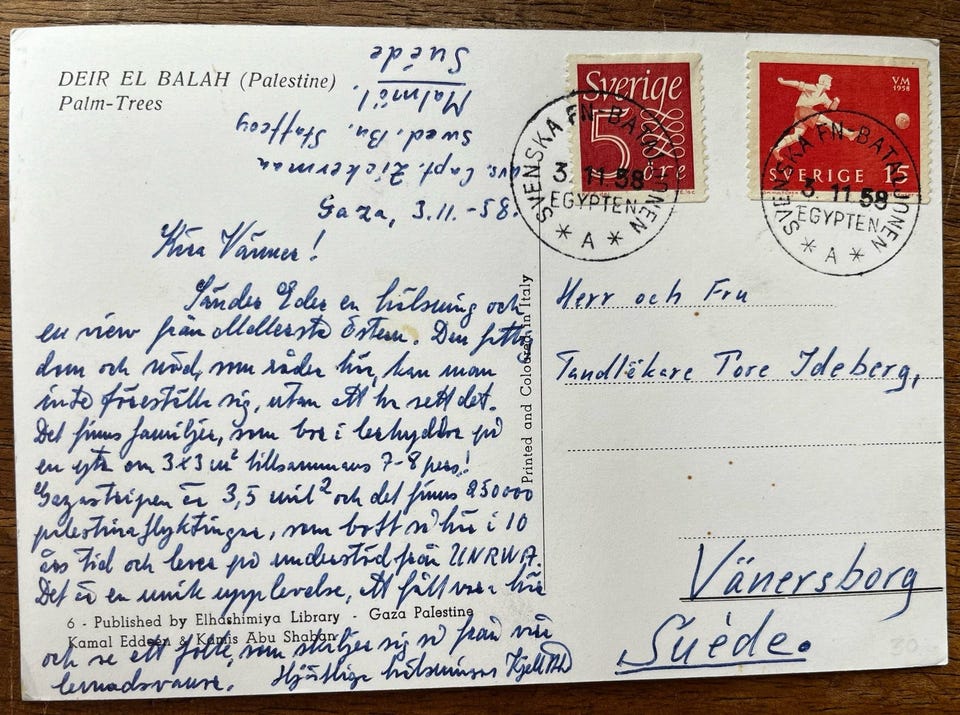 DEIR EL BALAH (Palestine)
Palm-Trees
Capt. Zickerman
Swed. Bn. Staffcoy
Malmö 1.
Suède
Gaza, 3.11.-58.
Kära Vänner!
Sänder Eder en hälsning och
en view från Mellersta Östern. Den fattig-
dom och nöd, som råder här, kan man
inte föreställa sig, utan att ha sett det.
Det finns familjer, som bor i lerhyddor på
en yta om 3x3 m² tillsammans 7-8 pers!
Gazastripen är 3,5 mil² och det finns 250000
palestinaflyktingar, som bott så här i 10
års tid och lever på understöd från UNRWA.
Det är en unik upplevelse, att fått vara här
och se ett folk, som skiljer sig så från vår
levnadsvana. Hjärtliga hälsningar Kjell
6 - Published by Elhashimiya Library - Gaza Palestine
Kamal Eddeen & Kamis Abu Shaban
Printed and Coloured in Italy
Sverige
5
öre
VM
1958
SVERIGE 15
SVENSKA FN-BATALJONEN
3.11.58
EGYPTEN
* A *
SVENSKA FN-BATALJONEN
3.11.58
EGYPTEN
* A *
Herr och Fru
Tandläkare Tore Ideberg,
Vänersborg
Suède.
30